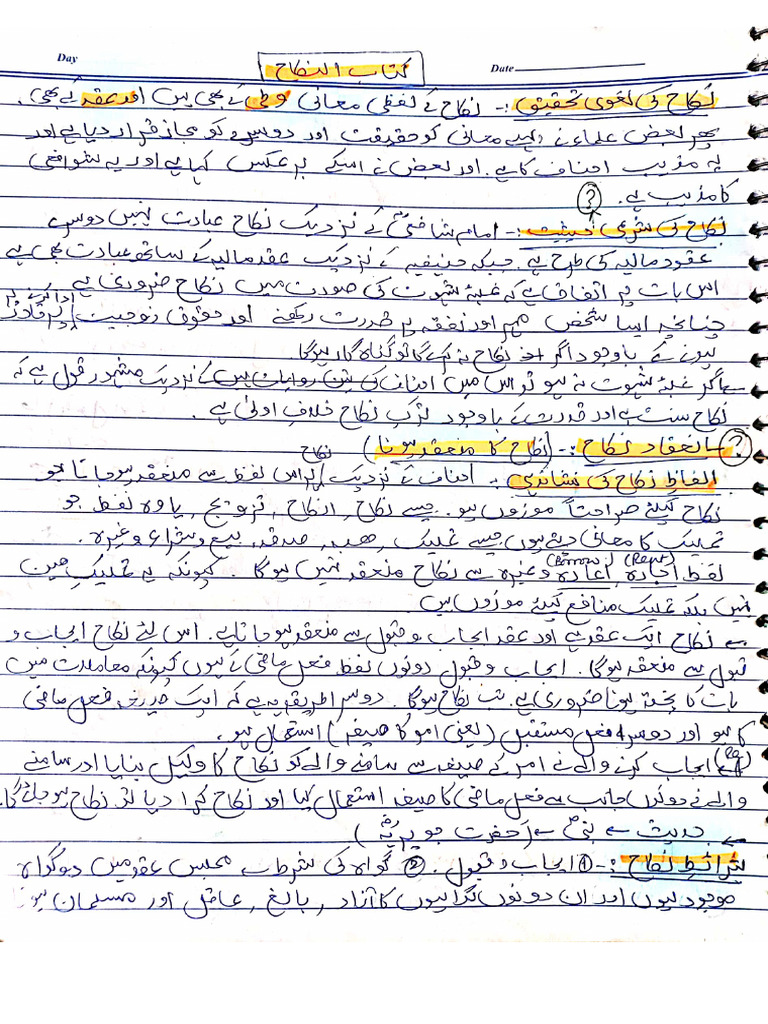 Day
کتاب النکاح
Date
نکاح کی لغوی تحقیق :- نکاح کے لفظی معانی وطی کے بھی ہیں اور عقد کے بھی.
پھر بعض علماء نے پہلے معانی کو حقیقت اور دوسرے کو مجاز قرار دیا ہے اور
یہ مذہب احناف کا ہے. اور بعض نے اسکے برعکس کہا ہے اور یہ شوافع
کا مذہب ہے.
?
نکاح کی شرعی حیثیت :- امام شافعیؒ کے نزدیک نکاح عبادت نہیں دوسرے
عقود مالیہ کی طرح ہے. جبکہ حنیفیہ کے نزدیک عقد مالیہ کے ساتھ عبادت بھی ہے
اس بات پر اتفاق ہے کہ غلبۂ شہوت کی صورت میں نکاح ضروری ہے
چنانچہ ایسا شخص مہر اور نفقہ پر قدرت رکھنے اور حقوق زوجیت ادا کرنے پر قادر
ہونے کے باوجود اگر نکاح نہ کرے گا تو گناہ گار ہوگا
اگر غلبۂ شہوت نہ ہو تو اس میں احناف کی تین روایات ہیں کے نزدیک مشہور قول ہے کہ
نکاح سنت ہے اور قدرت کے باوجود ترک نکاح خلاف اولیٰ ہے.
? انعقاد نکاح :- (نکاح کا منعقد ہونا)
الفاظ نکاح کی نشاندہی :- احناف کے نزدیک نکاح ہر اس لفظ سے منعقد ہو جاتا جو
نکاح کیلئے صراحتاً موزوں ہو. جیسے نکاح, انکاح, تزویج, یا وہ لفظ جو
تملیک کا معانی دیتے ہوں جیسے تملیک, ھبہ, صدقہ, بیع و شراء وغیرہ.
لفظ اجارہ (Rent), اعارہ (Borrow) وغیرہ سے نکاح منعقد نہیں ہوگا. کیونکہ یہ تملیک عین
نہیں بلکہ تملیک منافع کیلئے موزوں ہیں
نکاح ایک عقد ہے اور عقد ایجاب و قبول سے منعقد ہو جاتا ہے. اس لئے نکاح ایجاب و
قبول سے منعقد ہوگا. ایجاب و قبول دونوں لفظ فعل ماضی کے ہوں کیونکہ معاملات میں
بات کا پختہ ہونا ضروری ہے. تب نکاح ہوگا. دوسرا طریقہ یہ ہے کہ ایک صیغہ فعل ماضی
کا ہو اور دوسرا فعل مستقبل (یعنی امر کا صیغہ) استعمال ہو.
ایجاب کرنے والے نے امر کے صیغہ سے سامنے والے کو نکاح کا وکیل بنایا اور سامنے
والے نے دونوں جانب سے فعل ماضی کا صیغہ استعمال کیا اور نکاح کرا دیا تو نکاح ہو جائے گا.
حدیث سے نبیؐ سے (حضرت جویریہؓ)
شرائط نکاح :- ① ایجاب و قبول. ② گواہ کی شرط ہے مجلس عقد میں دو گواہ
موجود ہوں اور ان دونوں گواہوں کا آزاد, بالغ, عاقل اور مسلمان ہونا